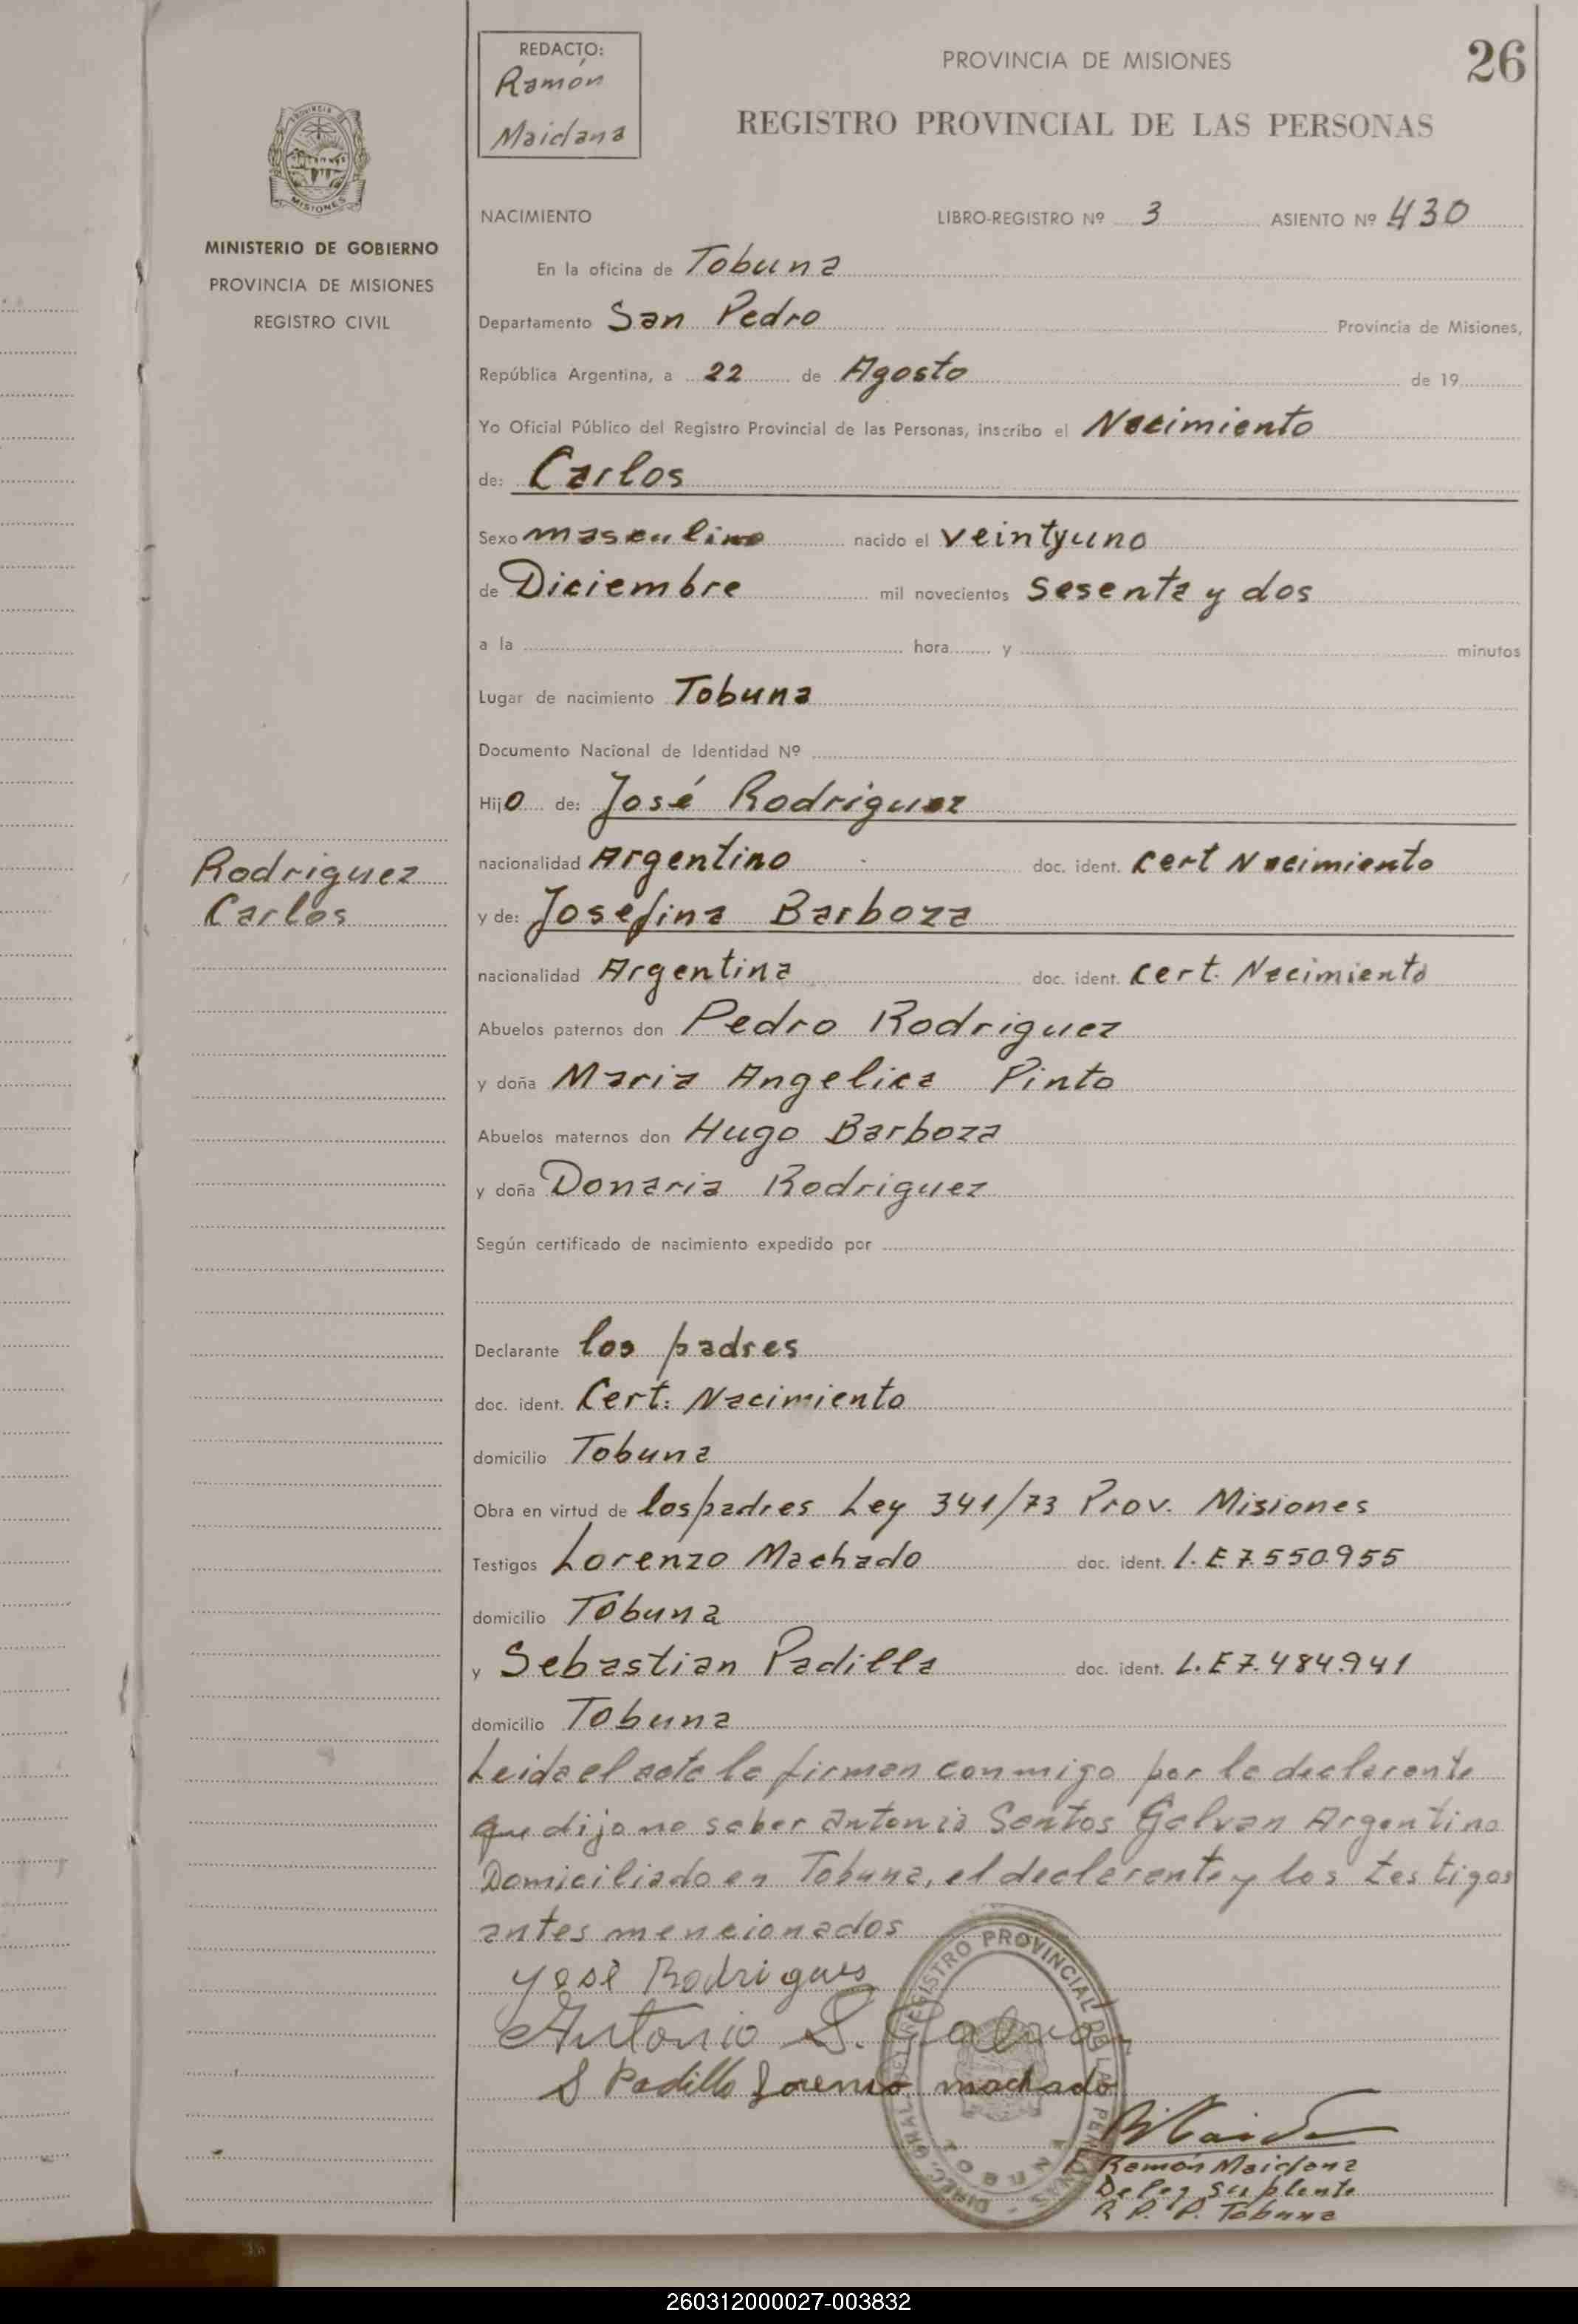 REDACTO:
Ramón
Maidana
PROVINCIA DE MISIONES
26
REGISTRO PROVINCIAL DE LAS PERSONAS
MISIONES
MINISTERIO DE GOBIERNO
PROVINCIA DE MISIONES
REGISTRO CIVIL
NACIMIENTO LIBRO-REGISTRO Nº 3 ASIENTO Nº 430
En la oficina de Tobuna
Departamento San Pedro Provincia de Misiones,
República Argentina, a 22 de Agosto de 19
Yo Oficial Público del Registro Provincial de las Personas, inscribo el Nacimiento
de: Carlos
Sexo masculino nacido el veintyuno
de Diciembre mil novecientos sesenta y dos
a la hora y minutos
Lugar de nacimiento Tobuna
Documento Nacional de Identidad Nº
Hijo de: José Rodriguez
Rodriguez
Carlos
nacionalidad Argentino doc. ident. Cert Nacimiento
y de: Josefina Barboza
nacionalidad Argentina doc. ident. Cert. Nacimiento
Abuelos paternos don Pedro Rodriguez
y doña Maria Angelica Pinto
Abuelos maternos don Hugo Barboza
y doña Donaria Rodriguez
Según certificado de nacimiento expedido por
Declarante los padres
doc. ident. Cert: Nacimiento
domicilio Tobuna
Obra en virtud de los padres Ley 341/73 Prov. Misiones
Testigos Lorenzo Machado doc. ident. L.E 7.550.955
domicilio Tobuna
y Sebastian Padilla doc. ident. L.E 7.484.941
domicilio Tobuna
Leida el acta la firman conmigo por la declarente
que dijo no saber Antonio Santos Galvan Argentino
Domiciliado en Tobuna, el declarente y los testigos
antes mencionados
José Rodrigues
Antonio S. Galvan
S Padilla Lorenso machado
DIREC. GRAL. DEL REGISTRO PROVINCIAL DE LAS PERSONAS
TOBUNA
Ramón Maidana
Deleg Suplente
R P. P. Tobuna
260312000027-003832